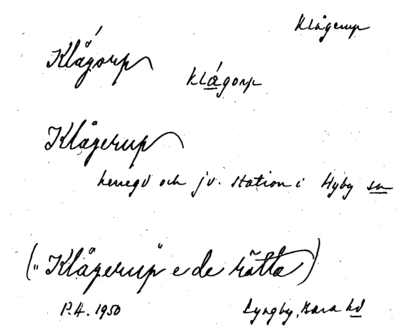 Klågerup
Klågorp
klágorp
Klågerup
herregd och jv. station i Hyby sn
("Klågerup" e de rätta)
P.H. 1950
Lyngby, Bara hd